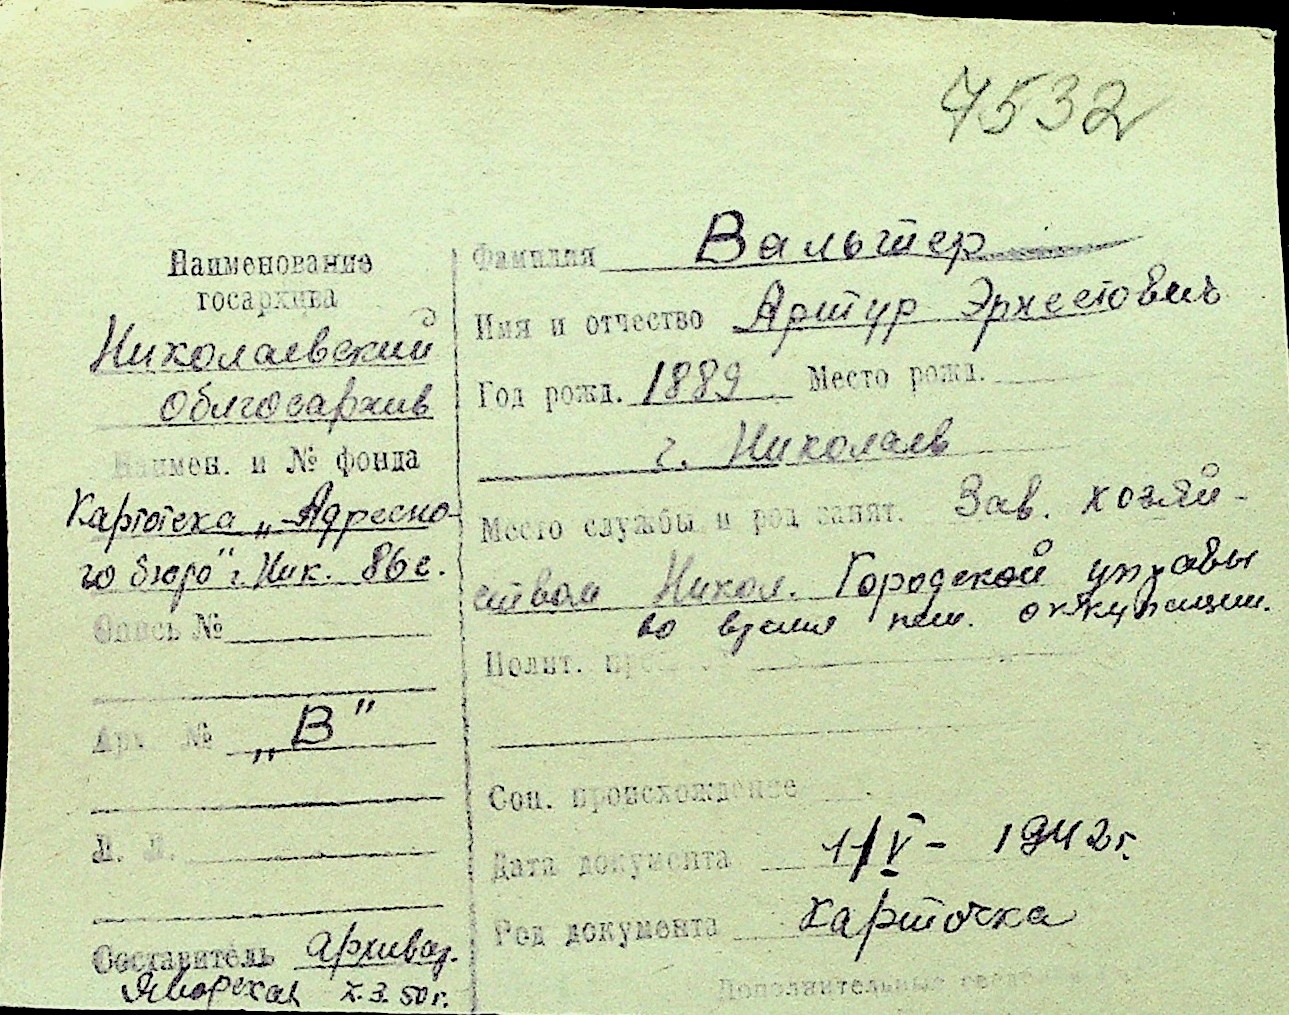 7532
Наименование
госархива
Николаевский
Облгосархив
Наимен. и № фонда
Картотека „Адресно-
го бюро" г. Ник. 86 с.
Опись №
Арх. № „В"
Л. Л.
Составитель архивар.
Яворская 7.3.50 г.
Фамилия Вальтер
Имя и отчество Артур Эрнестович
Год рожд. 1889 Место рожд.
г. Николаев
Место службы и род занят. Зав. хозяй-
ством Никол. Городской управы
во время нем. оккупации.
Полит.
Соц. происхождение
Дата документа 1/V - 1942 г.
Род документа карточка
Дополнительные